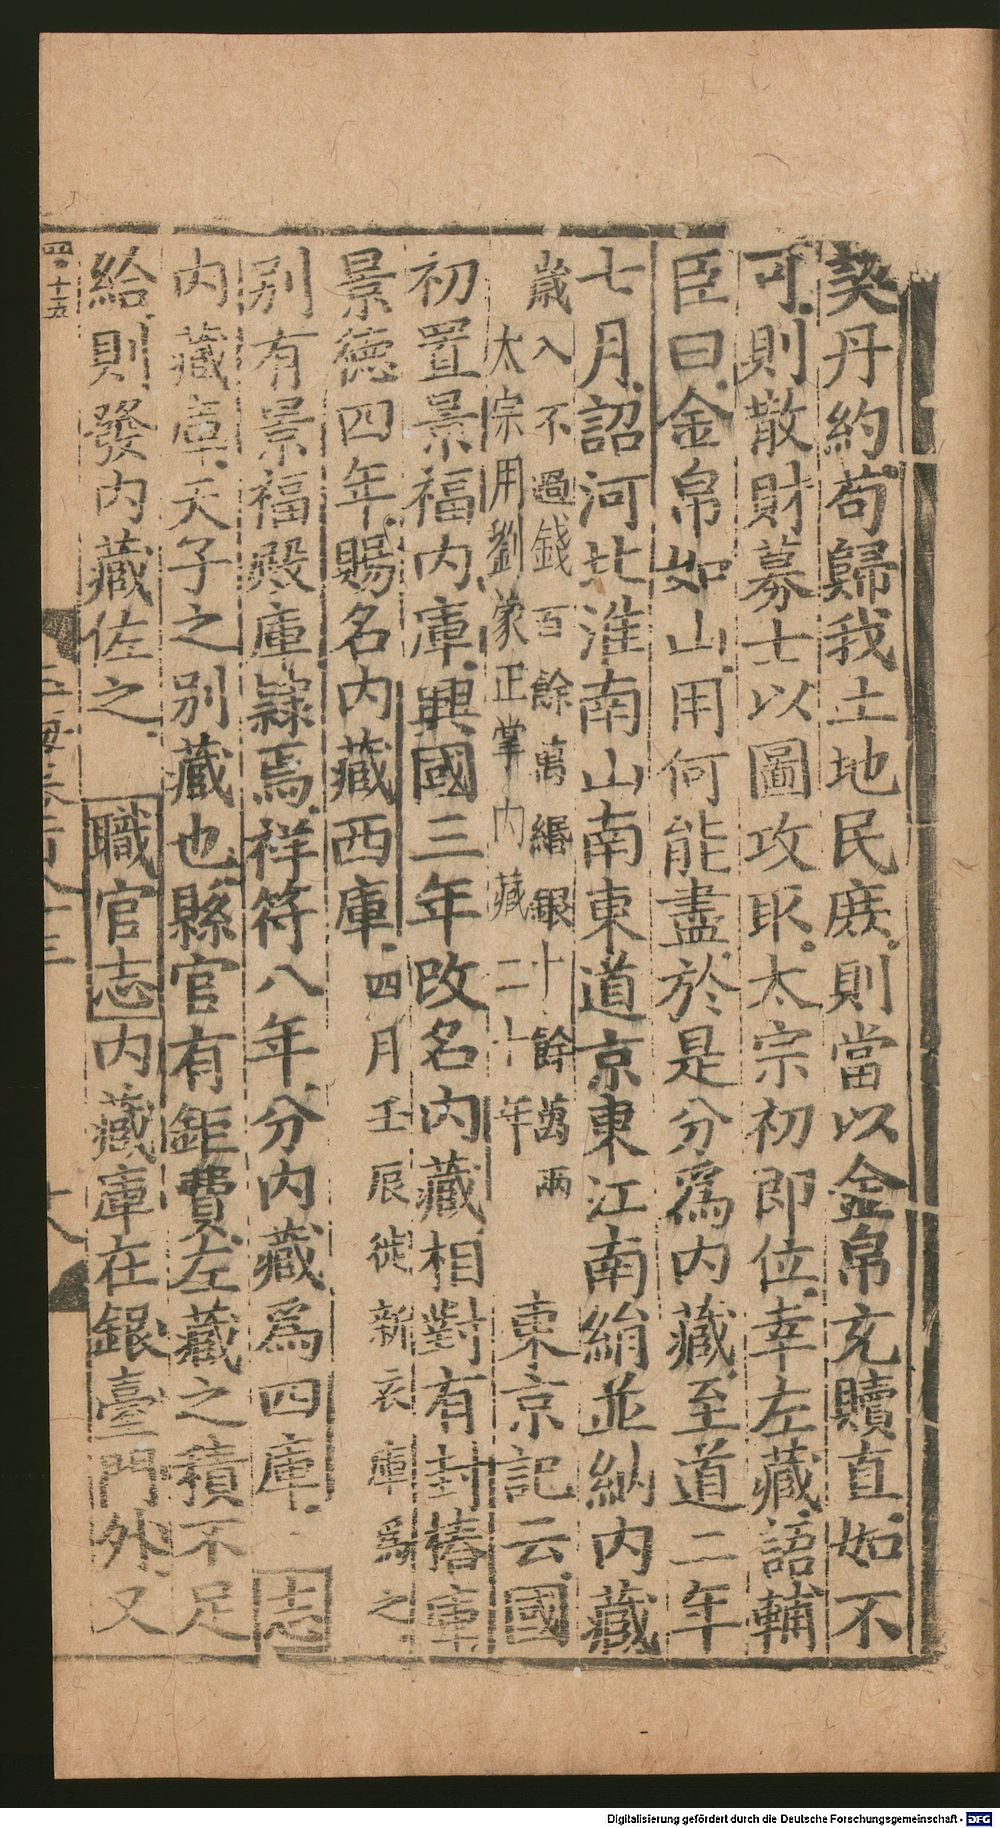 契丹約苟歸我土地民庶則當以金帛充贖直如不
可則散財募士以圖攻取太宗初即位幸左藏語輔
臣曰金帛如山用何能盡於是分爲内藏至道二年
七月詔河北淮南山南東道京東江南絹並納内藏
歲入不過錢百餘萬緡銀十餘萬兩
太宗用劉蒙正掌内藏二十年
東京記云國
初置景福内庫興國三年改名内藏相對有封樁庫
景德四年賜名内藏西庫四月壬辰徙新衣庫爲之
別有景福殿庫隷焉祥符八年分内藏爲四庫志
内藏庫天子之別藏也縣官有鉅費左藏之積不足
給則發内藏佐之職官志内藏庫在銀臺門外又
四十五
Digitalisierung gefördert durch die Deutsche Forschungsgemeinschaft - DFG